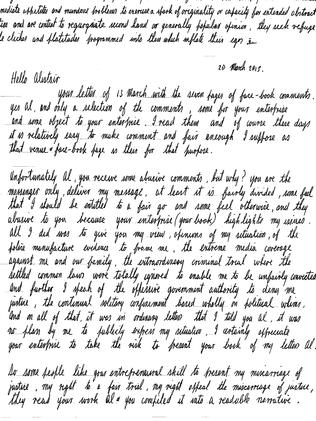 mediate appetites and mundane problems to exercise a spark of originality or capacity for extended abstract
and are content to regurgitate second hand or generally popular opinion, they seek refuge
clichés and platitudes programmed into them which inflate their ego's
20 March 2015.
Hello Alastair
your letter of 13 March with the seven pages of face-book comments.
yes Al, and only a selection of the comments, some for your enterprise
and some object to your enterprise. I read them and of course these days
it is relatively easy to make comment and fair enough I suppose as
that venue face-book page is there for that purpose.
Unfortunately Al, you receive some abusive comments, but why? you are the
messenger only, deliver my message, at least it is fairly divided, some feel
that I should be entitled to a fair go and some feel otherwise, and they
abusive to you because your enterprise (your book) highlights my issues.
All I did was to give you my view, opinions of my situation, of the
police manufacture evidence to frame me, the extreme media coverage
against me and our family, the extraordinary criminal trial where the
settled common laws were totally ignored to enable me to be unfairly convicted
and further I speak of the oppressive government authority to deny me
justice, the continual solitary confinement based wholly on political whims.
and in all of that, it was in ordinary letters that I told you Al, it was
no plan by me to publicly expose my situation, I certainly appreciate
your enterprise to take the risk to present your book of my letters Al.
As some people like your entrepreneurial skill to present my miscarriage of
justice, my right to a fair trial, my right appeal the miscarriage of justice,
they read your work Al you compiled it into a readable narrative.